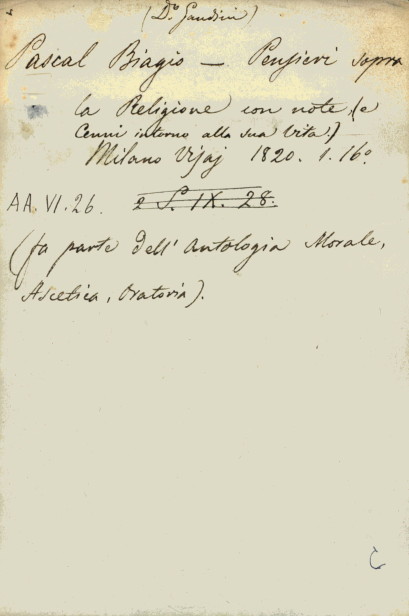 (D.º Gandini)
Pascal Biagio — Pensieri sopra
la Religione con note, (e
Cenni intorno alla sua Vita.)
Milano Visaj 1820. 1. 16º
AA. VI. 26. 2 S. IX. 28.
(fa parte dell' Antologia Morale,
Ascetica, Oratoria).
C